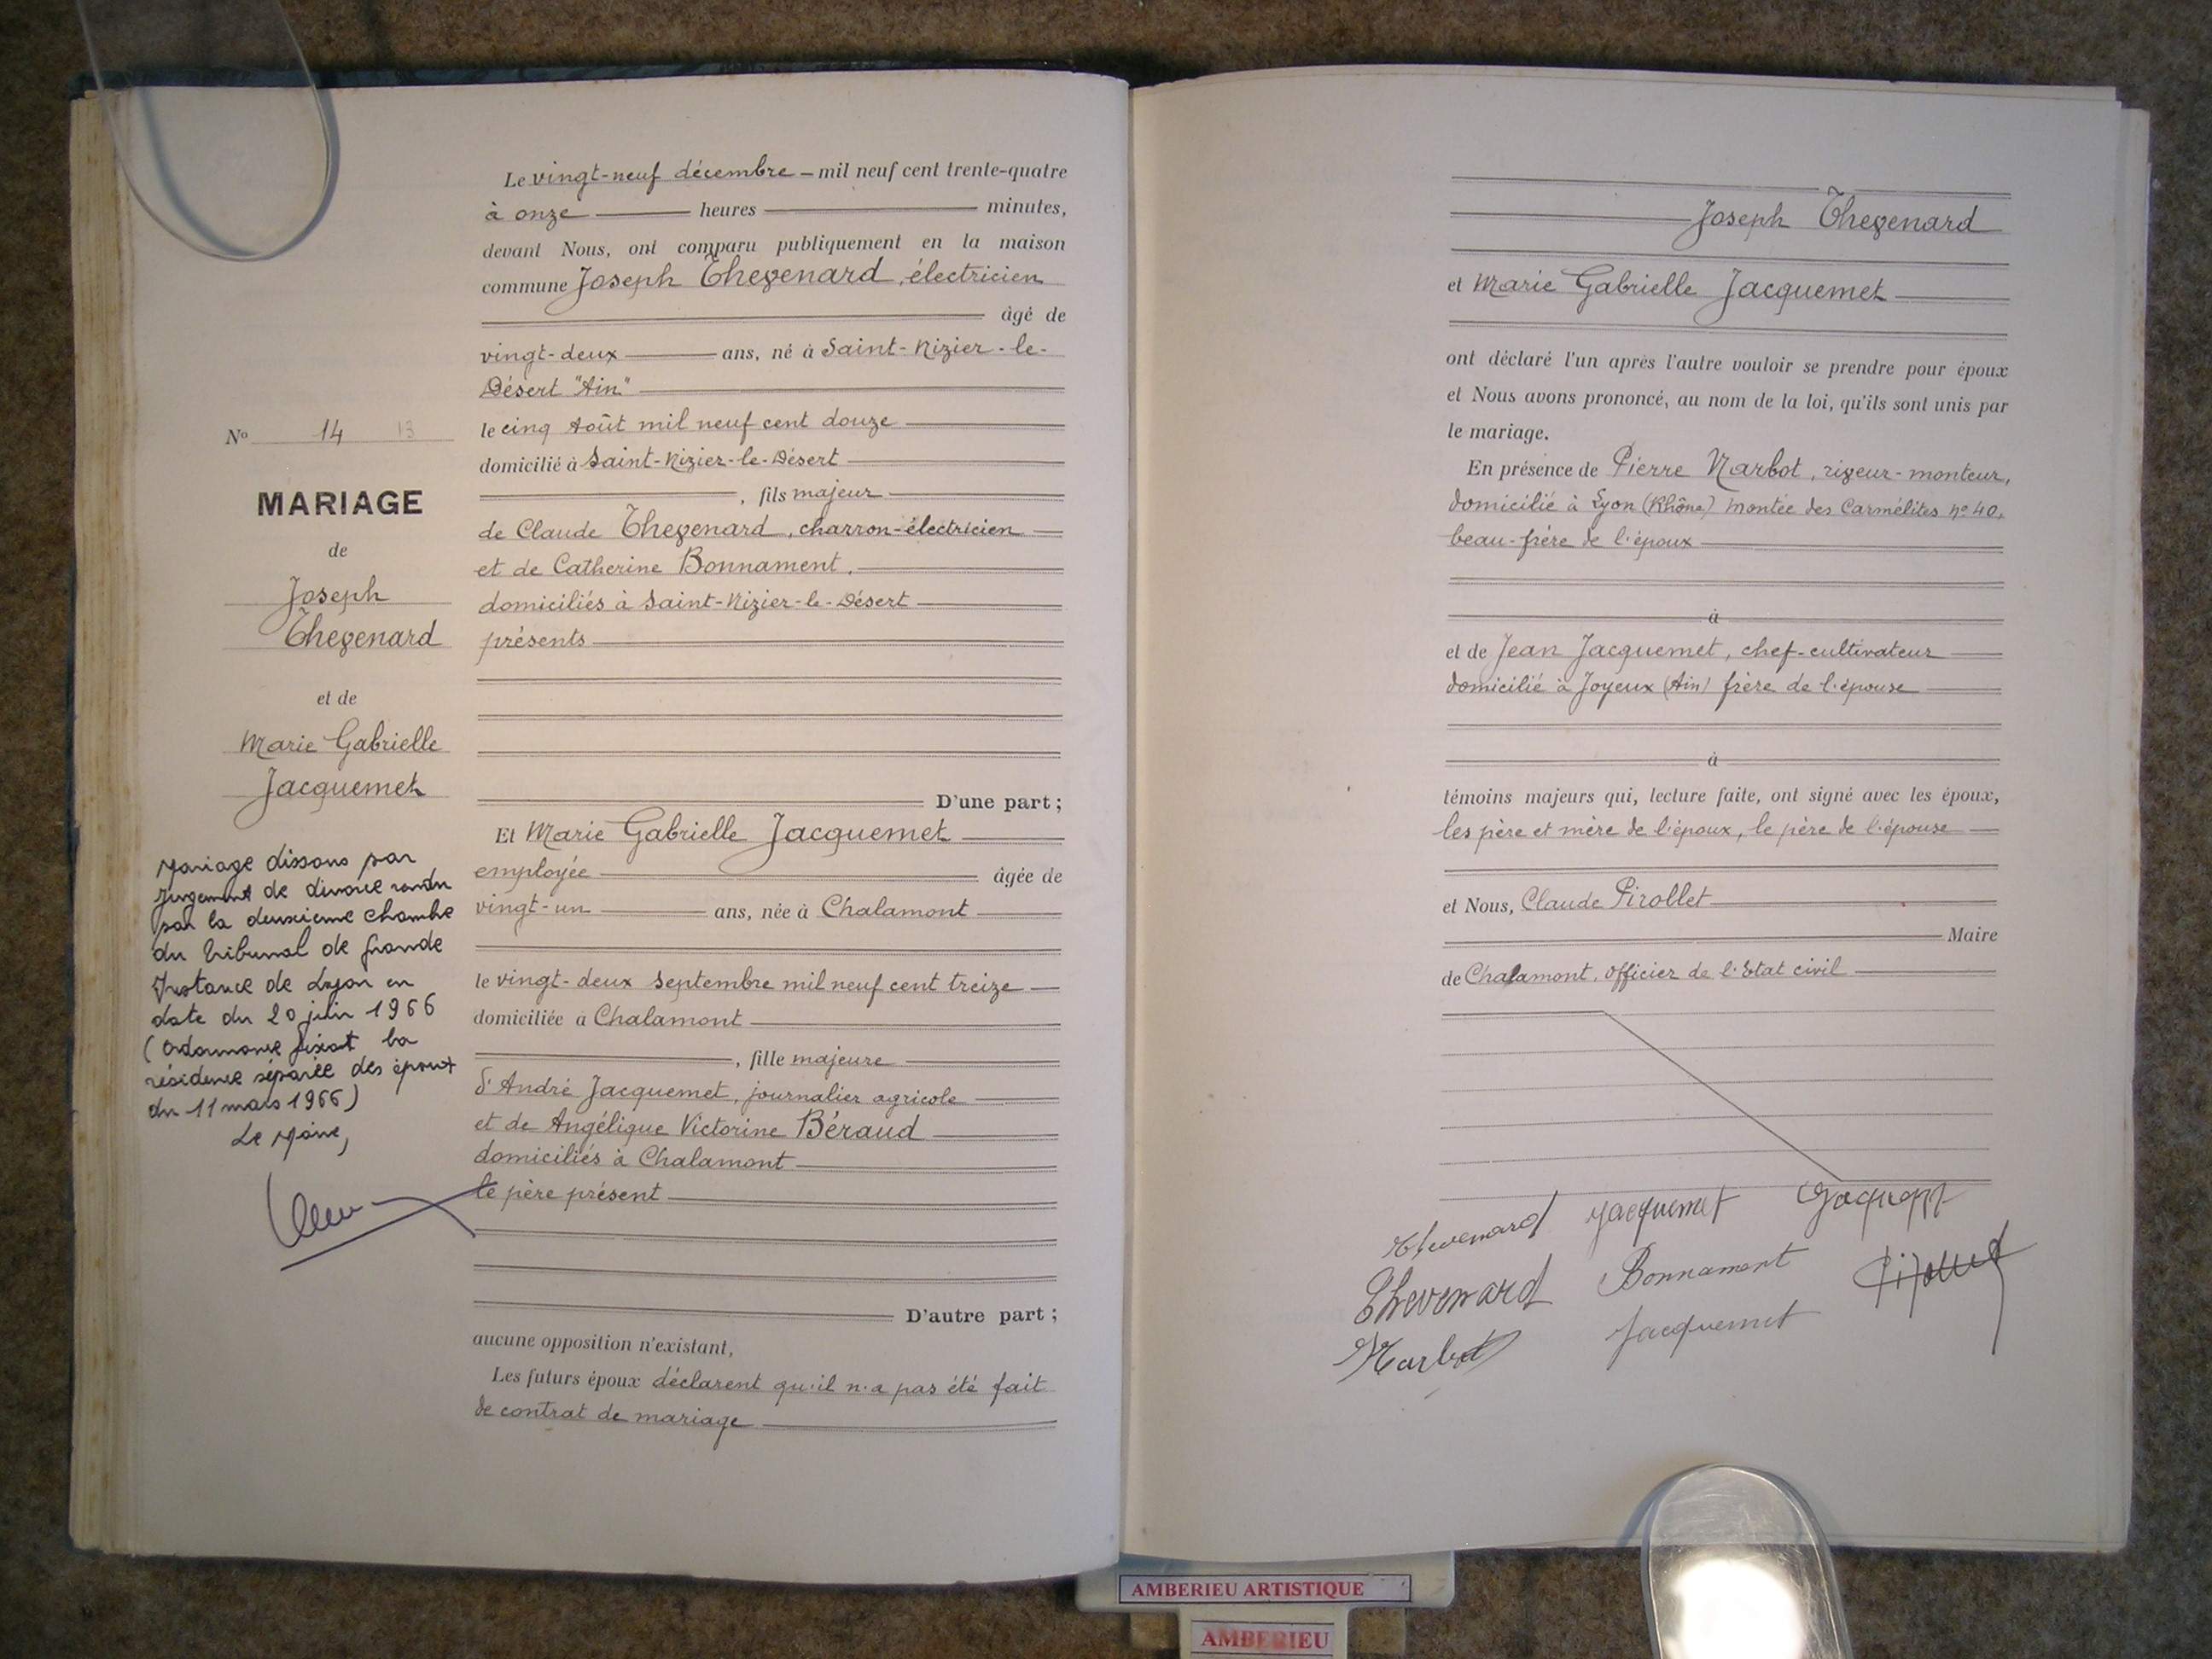 Nº 14 13
MARIAGE
de
Joseph
Thevenard
et de
Marie Gabrielle
Jacquemet
Mariage dissous par
jugement de divorce rendu
par la deuxième chambre
du Tribunal de Grande
Instance de Lyon en
date du 20 juin 1966
(Ordonnance fixant la
résidence séparée des époux
du 11 mars 1966)
Le Maire,
Le vingt-neuf décembre - mil neuf cent trente-quatre
à onze heures minutes,
devant Nous, ont comparu publiquement en la maison
commune Joseph Thevenard, électricien
âgé de
vingt-deux ans, né à Saint-Nizier-le-
Désert "Ain"
le cinq Août mil neuf cent douze
domicilié à Saint-Nizier-le-Désert
, fils majeur
de Claude Thevenard, charron-électricien
et de Catherine Bonnament,
domiciliés à Saint-Nizier-le-Désert
présents
D'une part ;
Et Marie Gabrielle Jacquemet
employée âgée de
vingt-un ans, née à Chalamont
le vingt-deux Septembre mil neuf cent treize
domiciliée à Chalamont
, fille majeure
d'André Jacquemet, journalier agricole
et de Angélique Victorine Béraud
domiciliés à Chalamont
le père présent
D'autre part ;
aucune opposition n'existant,
Les futurs époux déclarent qu'il n'a pas été fait
de contrat de mariage
Joseph Thevenard
et Marie Gabrielle Jacquemet
ont déclaré l'un après l'autre vouloir se prendre pour époux
et Nous avons prononcé, au nom de la loi, qu'ils sont unis par
le mariage.
En présence de Pierre Narbot, riveur-monteur,
domicilié à Lyon (Rhône) Montée des Carmélites nº 40,
beau-frère de l'époux
à
et de Jean Jacquemet, chef-cultivateur
domicilié à Joyeux (Ain) frère de l'épouse
à
témoins majeurs qui, lecture faite, ont signé avec les époux,
les père et mère de l'époux, le père de l'épouse
et Nous, Claude Pirollet
Maire
de Chalamont, officier de l'Etat civil
Thevenard Jacquemet Jacquemet
Thevenard Bonnament Pirollet
Narbot Jacquemet
AMBERIEU ARTISTIQUE
AMBERIEU